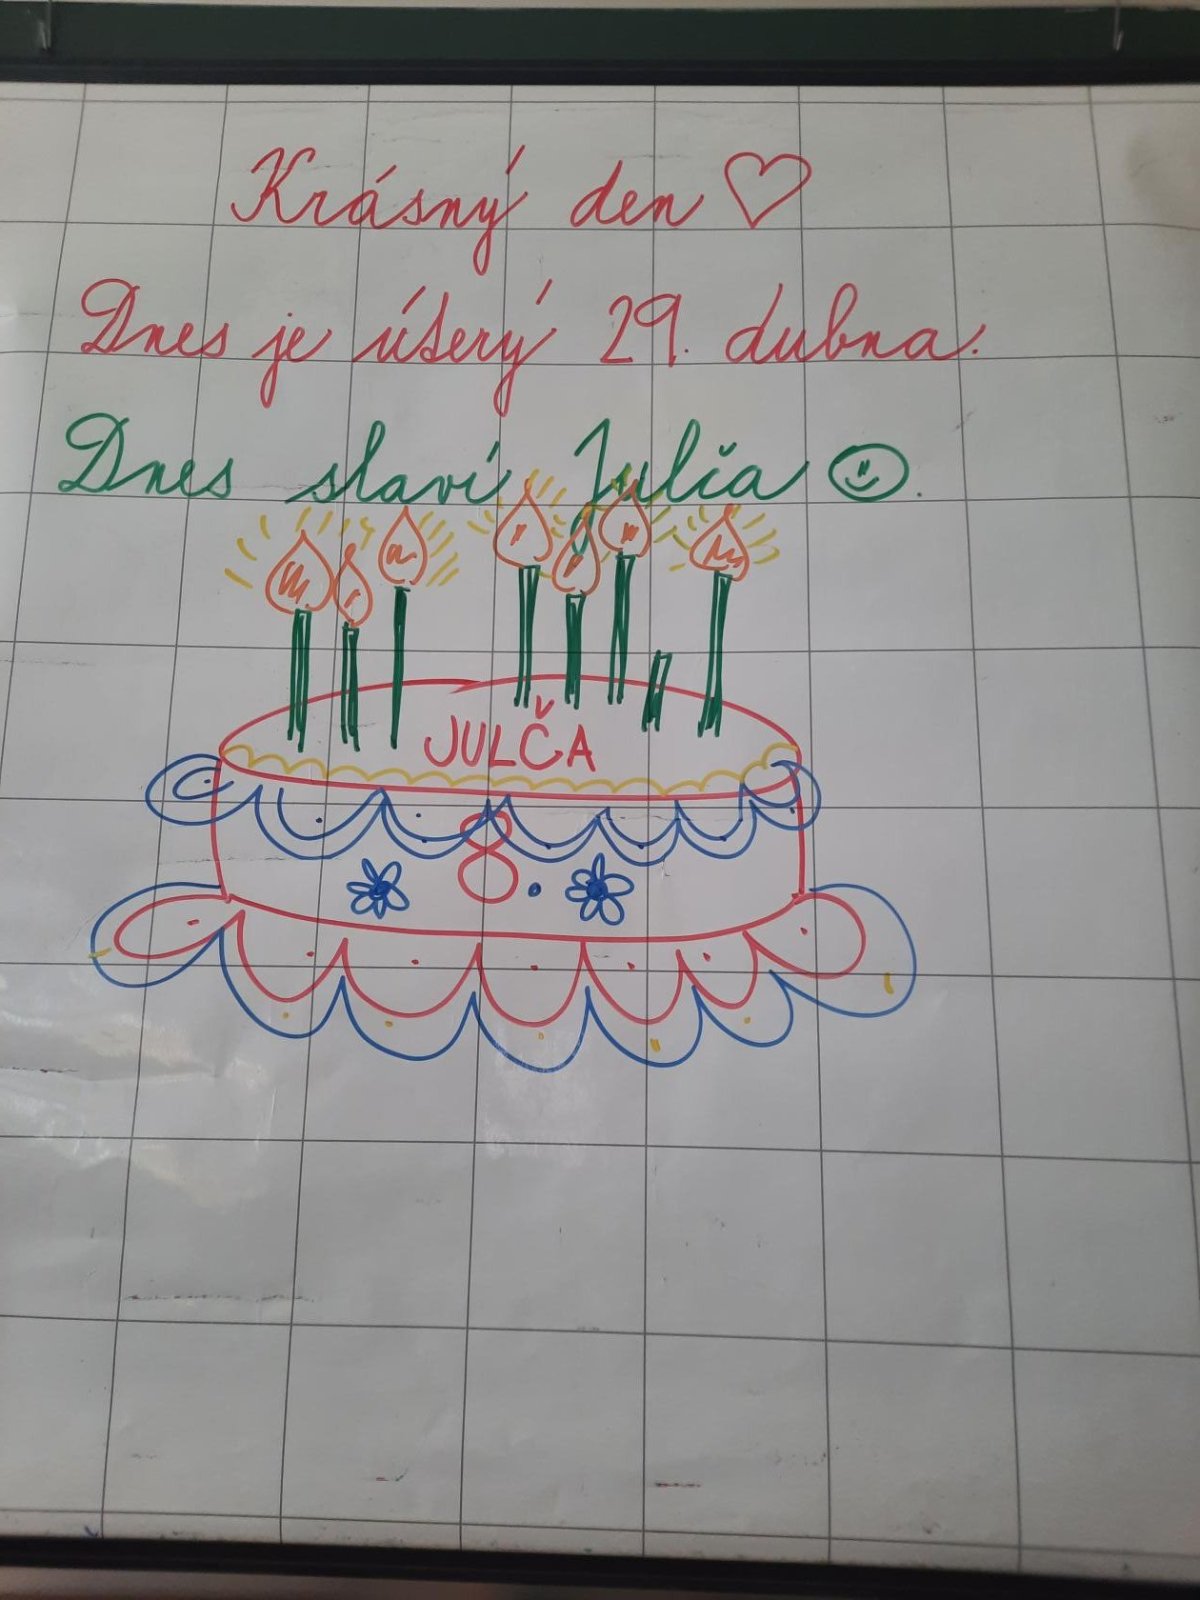 Krásný den ♡
Dnes je úterý 29. dubna.
Dnes slaví Julča ☺.
JULČA
8.